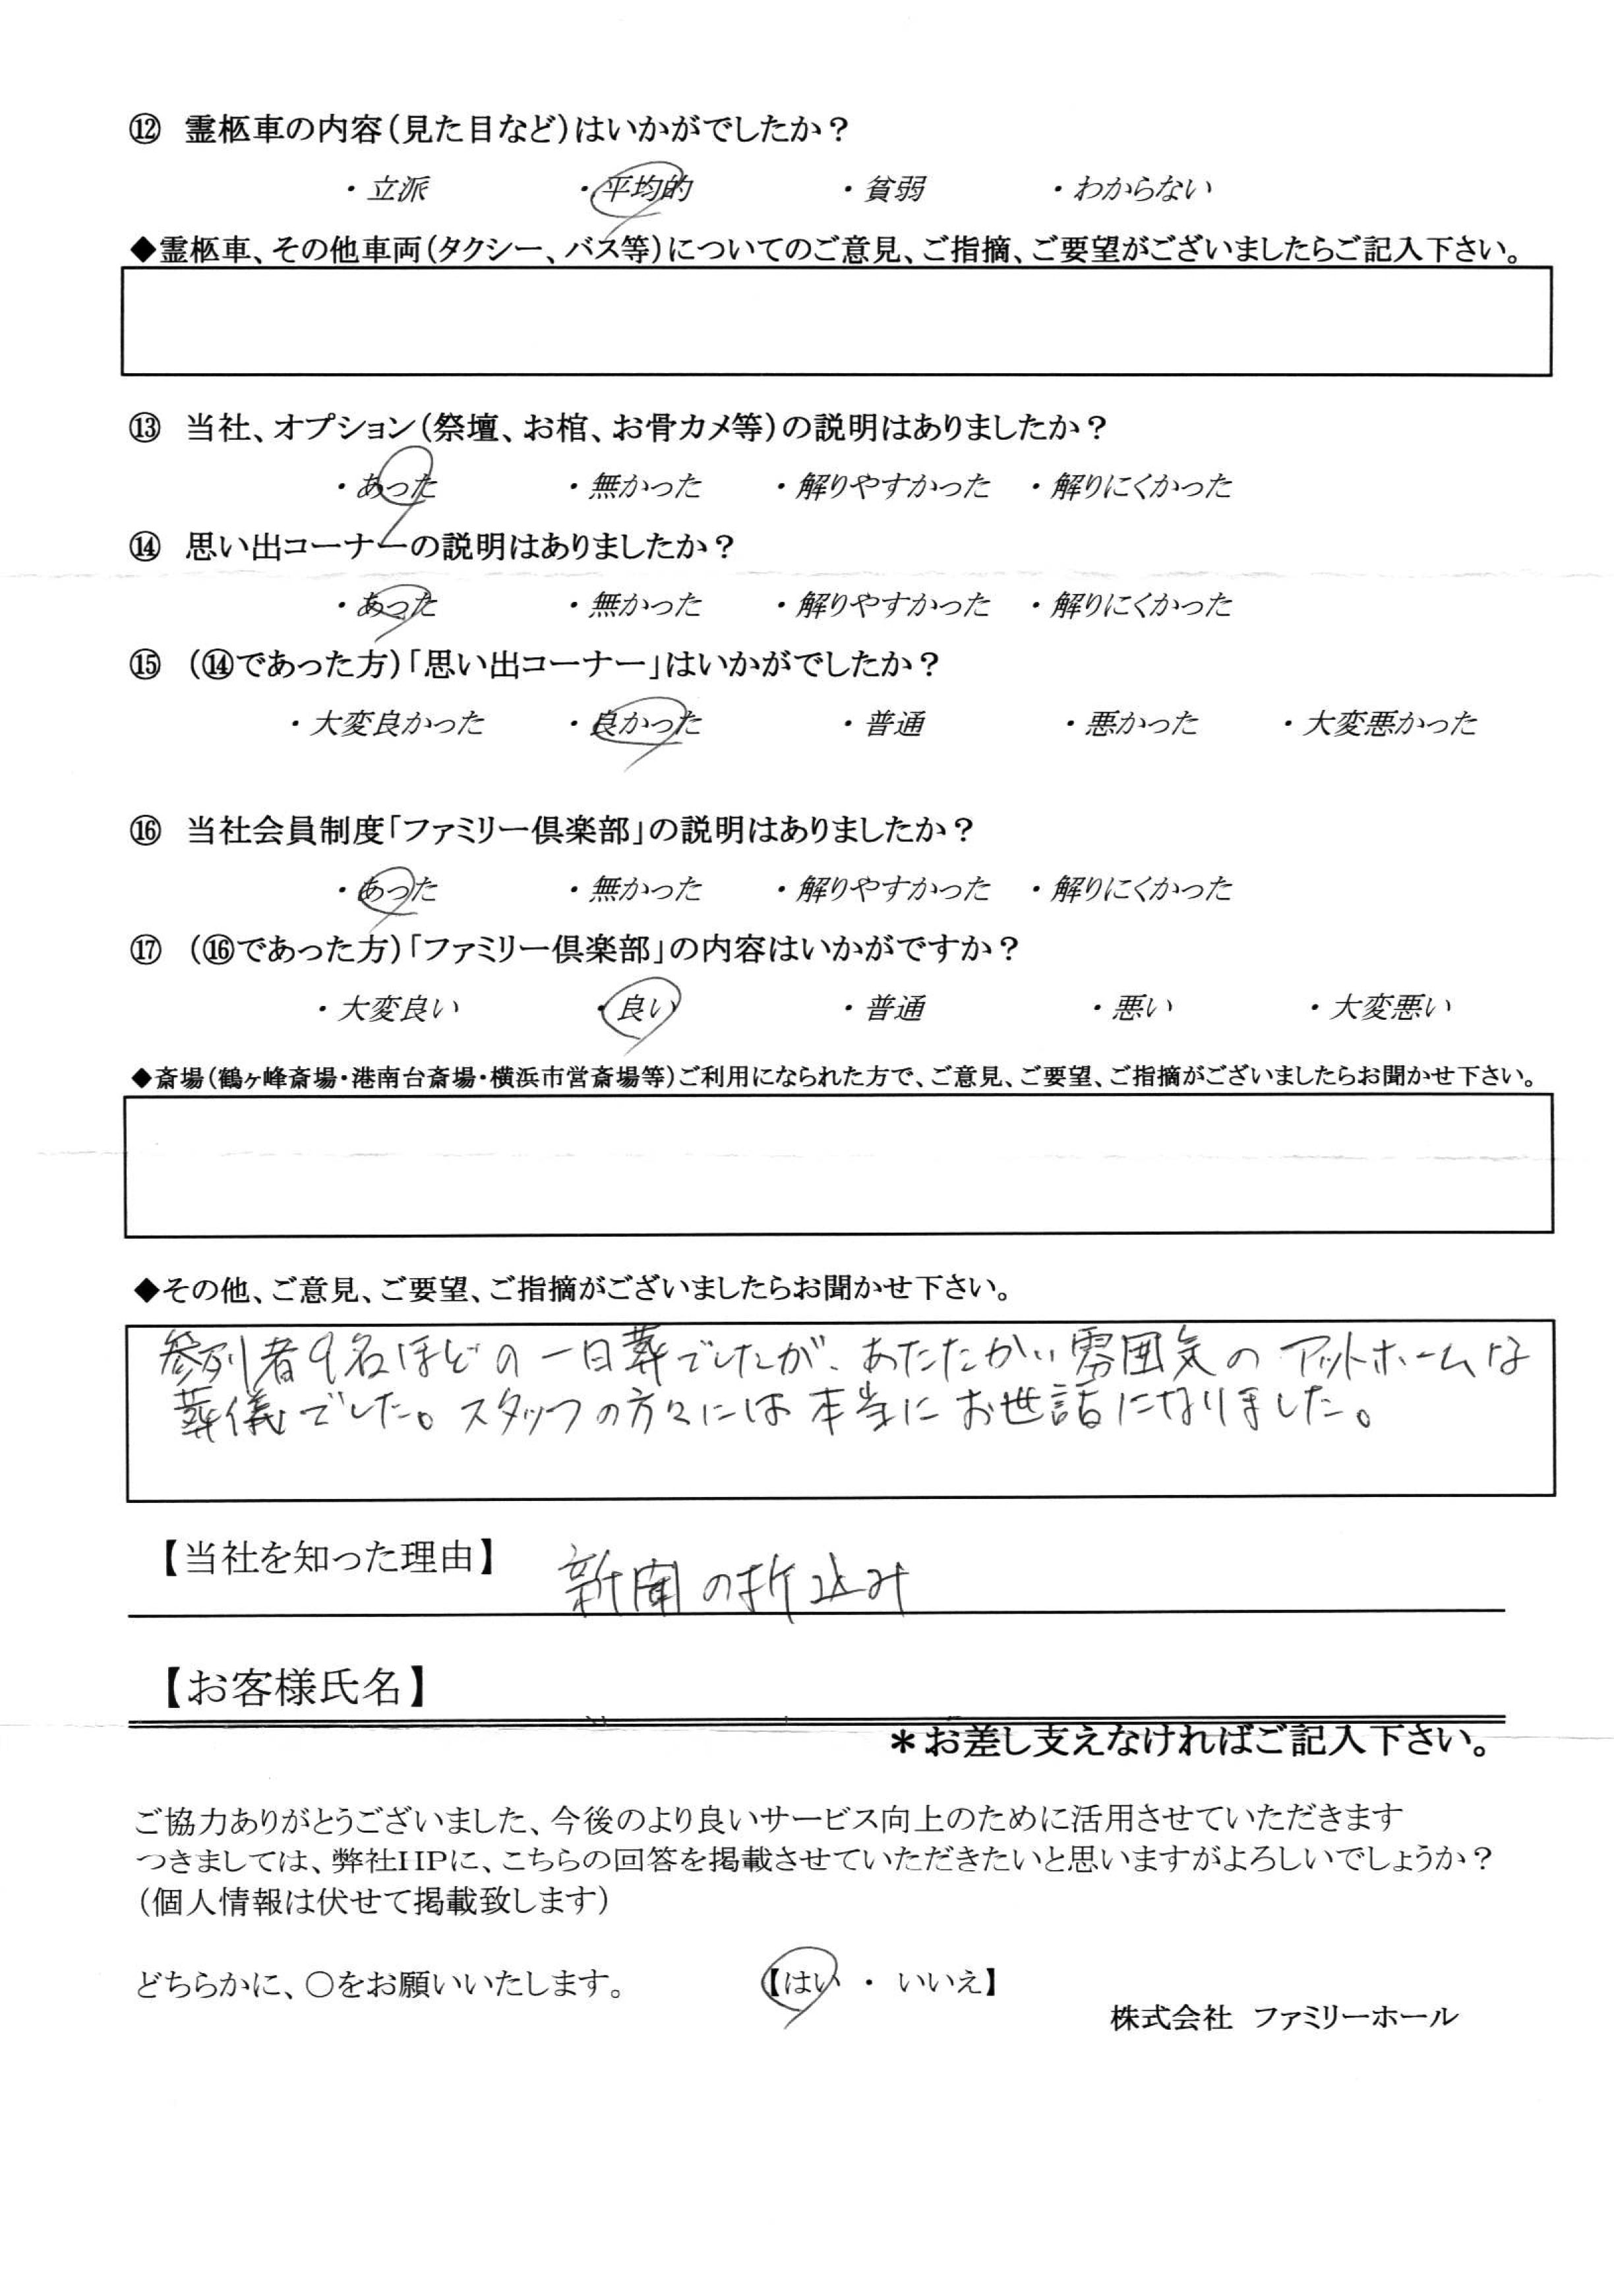 ⑫ 霊柩車の内容(見た目など)はいかがでしたか?
・立派 ・平均的 ・貧弱 ・わからない
◆霊柩車、その他車両(タクシー、バス等)についてのご意見、ご指摘、ご要望がございましたらご記入下さい。
⑬ 当社、オプション(祭壇、お棺、お骨カメ等)の説明はありましたか?
・あった ・無かった ・解りやすかった ・解りにくかった
⑭ 思い出コーナーの説明はありましたか?
・あった ・無かった ・解りやすかった ・解りにくかった
⑮ (⑭であった方)「思い出コーナー」はいかがでしたか?
・大変良かった ・良かった ・普通 ・悪かった ・大変悪かった
⑯ 当社会員制度「ファミリー倶楽部」の説明はありましたか?
・あった ・無かった ・解りやすかった ・解りにくかった
⑰ (⑯であった方)「ファミリー倶楽部」の内容はいかがですか?
・大変良い ・良い ・普通 ・悪い ・大変悪い
◆斎場(鶴ヶ峰斎場・港南台斎場・横浜市営斎場等)ご利用になられた方で、ご意見、ご要望、ご指摘がございましたらお聞かせ下さい。
◆その他、ご意見、ご要望、ご指摘がございましたらお聞かせ下さい。
参列者9名ほどの一日葬でしたが、あたたかい雰囲気のアットホームな
葬儀でした。スタッフの方々には本当にお世話になりました。
【当社を知った理由】 新聞の折込み
【お客様氏名】
*お差し支えなければご記入下さい。
ご協力ありがとうございました、今後のより良いサービス向上のために活用させていただきます
つきましては、弊社HPに、こちらの回答を掲載させていただきたいと思いますがよろしいでしょうか?
(個人情報は伏せて掲載致します)
どちらかに、○をお願いいたします。 【はい ・ いいえ】
株式会社 ファミリーホール